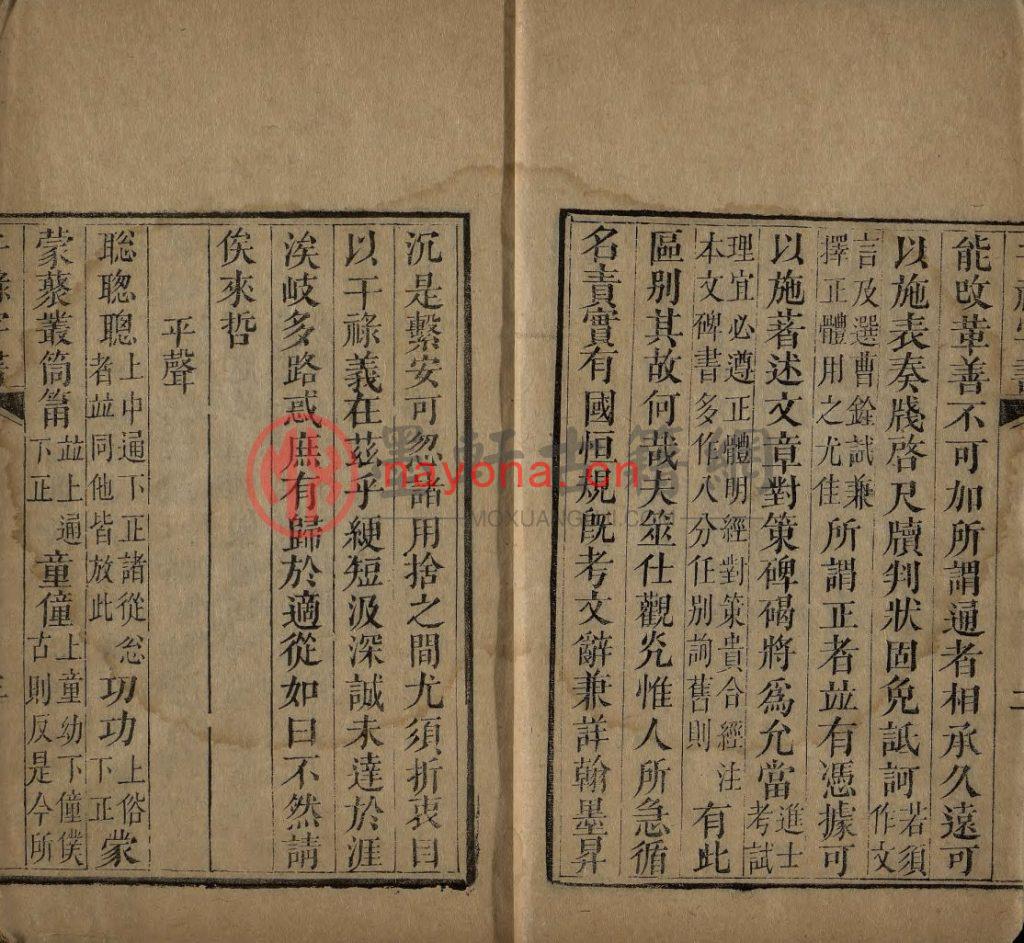 能改革善不可加所謂通者相承久遠可
以施表奏牋啓尺牘判狀固免詆訶若須作文
言及選曹銓試兼擇正體用之尤佳所謂正者並有憑據可
以施著述文章對策碑碣將爲允當進士考試
理宜必遵正體明經對策貴合經注本文碑書多作八分任別詢舊則有此
區別其故何哉夫筮仕觀光惟人所急循
名責實有國恒規旣考文辭兼詳翰墨昇
沉是繫安可忽諸用捨之間尤須折衷目
以干祿義在茲乎綆短汲深誠未達於涯
涘岐多路惑庶有歸於適從如曰不然請
俟來哲
平聲
聡聦聰上中通下正諸從怱者並同他皆放此㓛功上俗下正蒙
蒙藂叢筒筩並上通下正童僮上童幼下僮僕古則反是今所
墨軒古籍網
nayona.cn